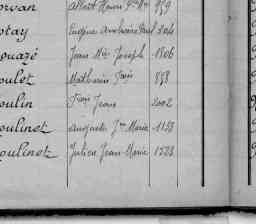 orvan Albert Henri 959
otay Eugène Paul 504
ouazé Jean Mie Joseph 1806
oulet Mathurin Fçois 898
oulin Fçois Jean 2002
oulinet Auguste Jn Marie 1133
oulinet Julien Jean Marie 1523